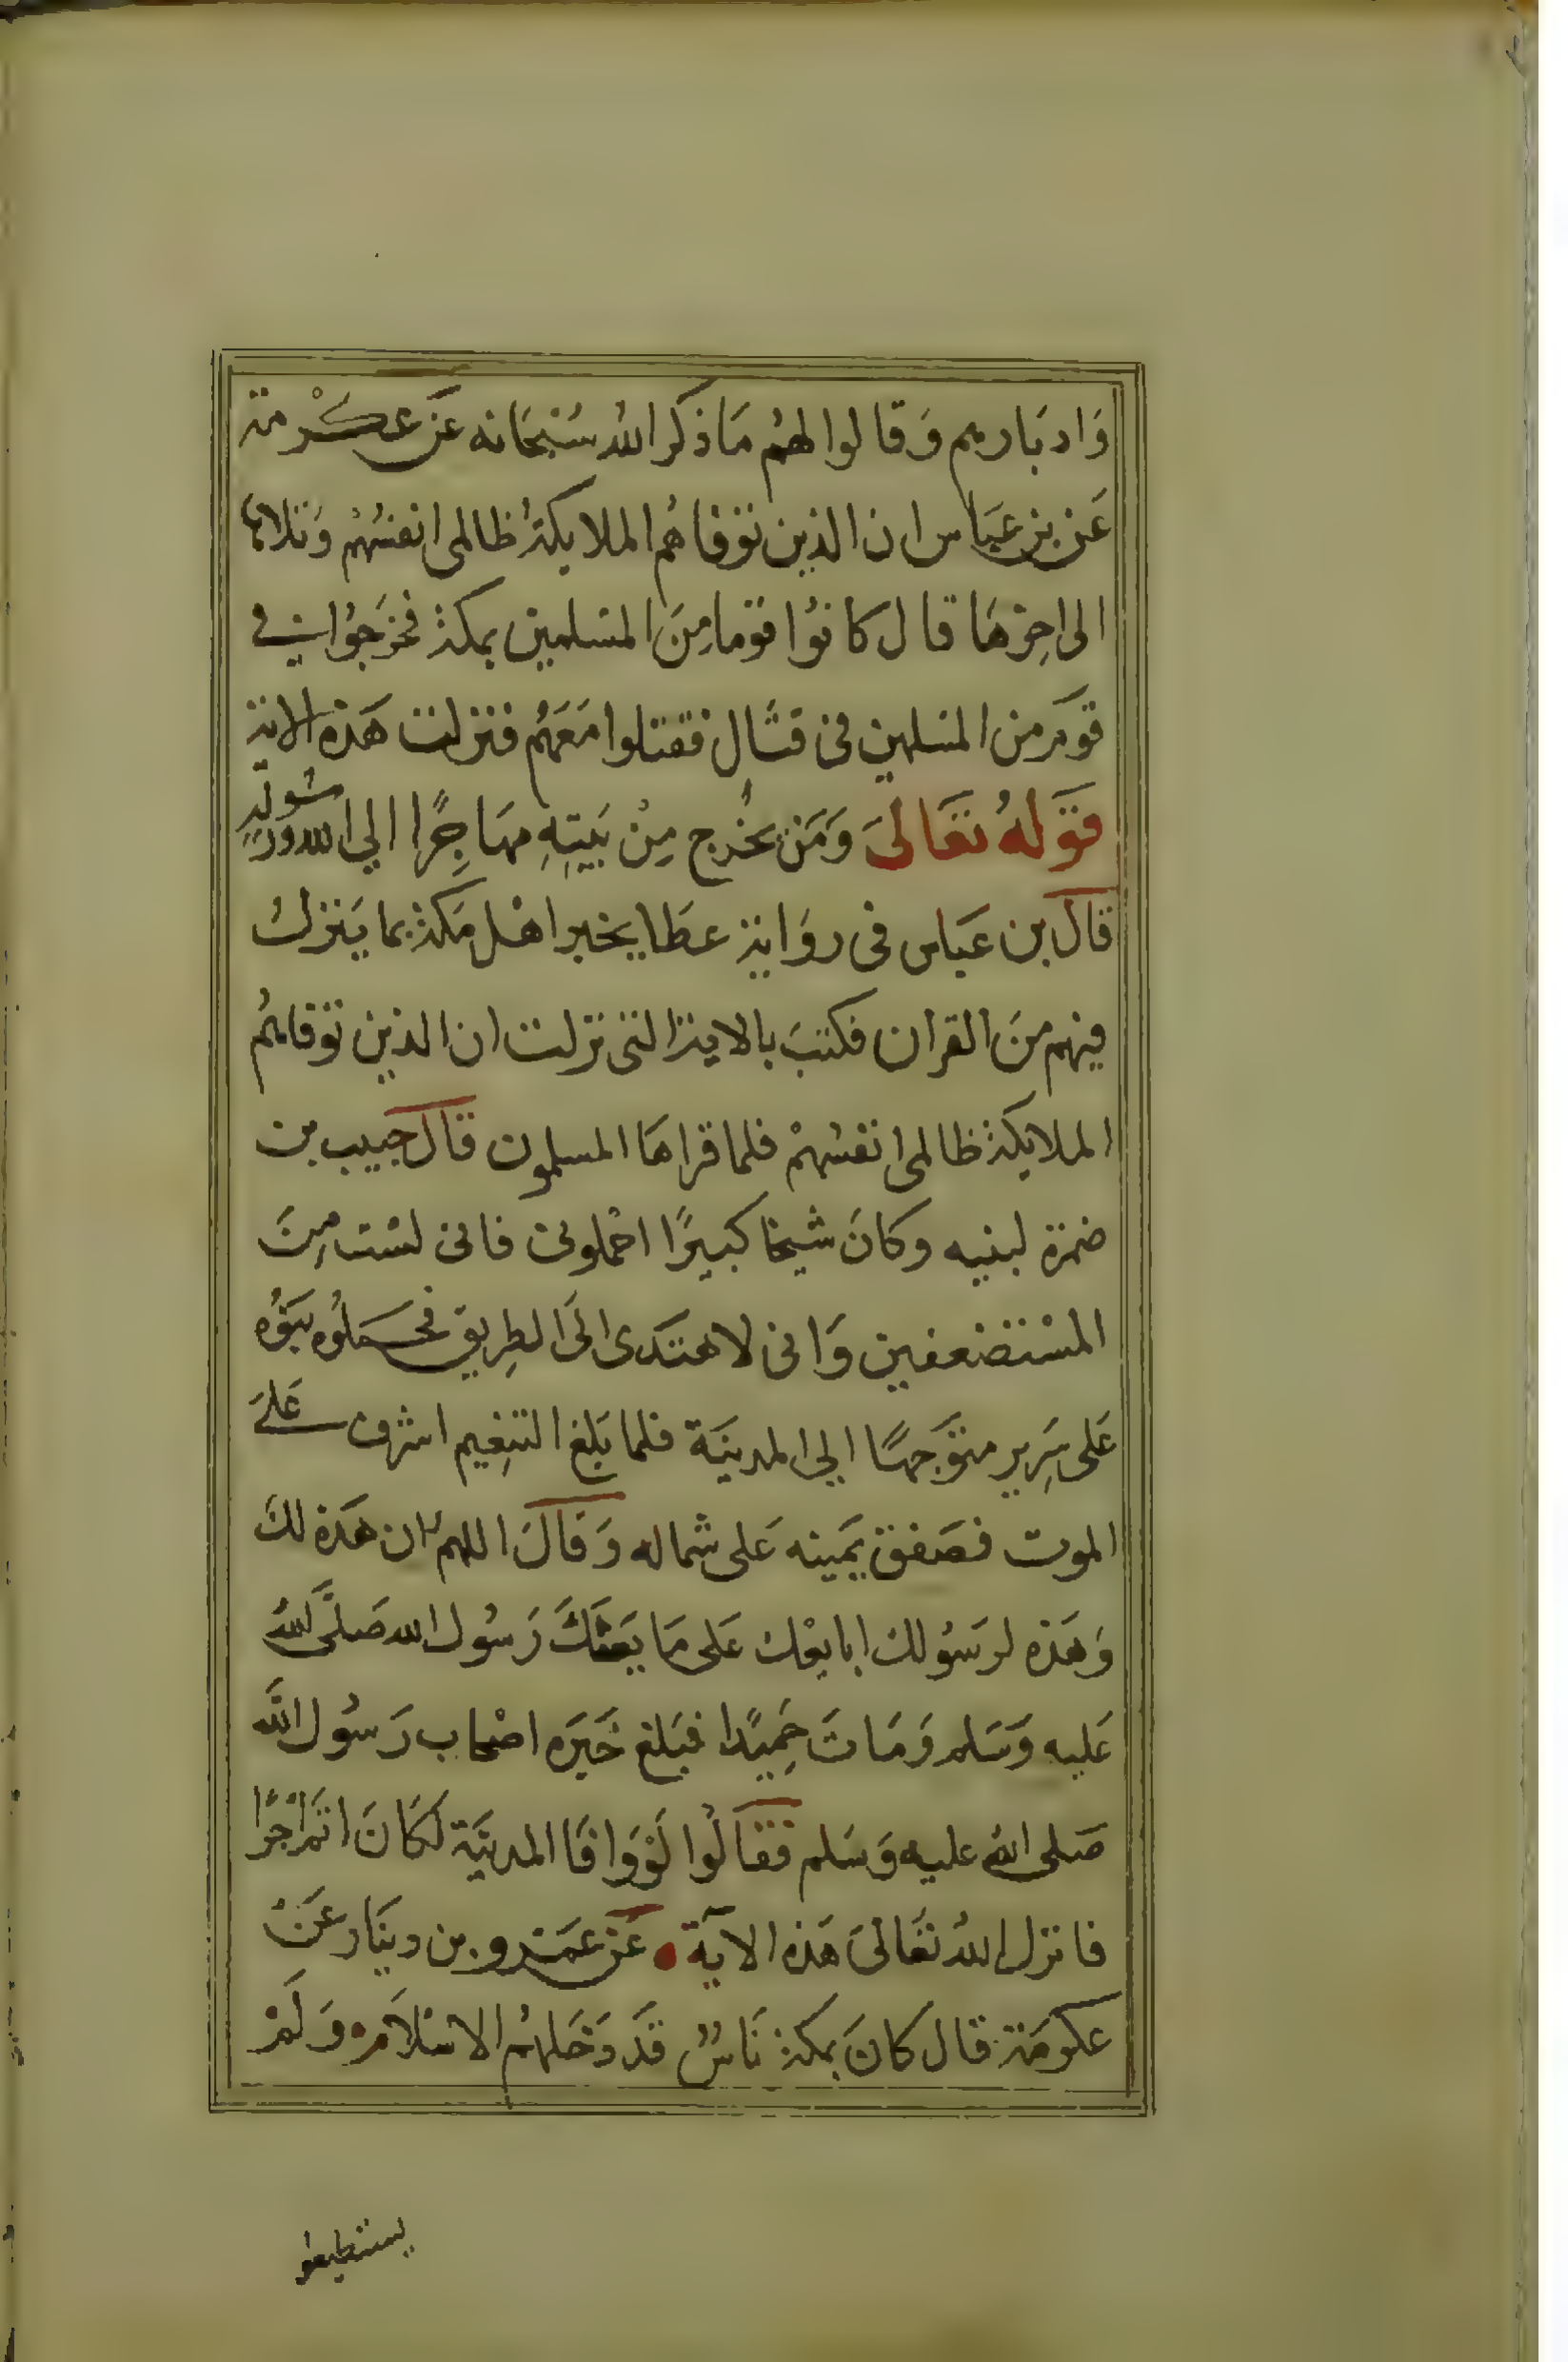 وَادبَارهم وَقالوا لهُم مَا ذكر اللهُ سُبْحَانه عَن عكْرمة
عَن بن عَبَاس ان الذين توفاهُم الملايكةُ ظالمى انفسُهمْ وَتلاها
الى اخِرهَا قال كانوُا قومَا مِنَ المسَلمين بمكة فخرَجوُا فى
قومر من المسَلمين فى قتَال فقتلوا مَعَهُم فنزلت هَذه الاية
قوَلهُ تعَالىَ وَمَن يخرُج مِنْ بَيتِهِ مهَاجِرًا الي الله ورسُولهِ
قال بن عَباس فى روَاية عطَا يخبر اهْل مَكة بما يَنزلُ
فيهم منَ القران فكتبَ بالاية التى نزلت ان الذين توفاهُم
الملايكة ظالمى انفسُهمْ فلما قراهَا المسلمون قال حبيب بن
ضمرة لبنيه وكانَ شيخا كبيرًا احْملونى فانى لسْت مِنَ
المسْتضعفين وَانى لا هتدَى الىَ الطِريق فحملُوه بَنوُه
عَلى سَرِير متوَجهًا الي المدينَة فلما بَلغ التنعِيم اشرف عَلىَ
الموت فصَفق يمَينه عَلى شماله وَقالَ اللهم ان هَذهَ لكَ
وَهَذه لرسَوُلك ابايعْك عَلى مَا يَعثكَ رَسوُل الله صَلَّى اللهُ
عَليه وَسَلم وَمَاتَ حَمِيدًا فبَلغ خَبَره اصْحاب رَسوُل الله
صَلى اللهُ عليه وَسَلم فقالوُا لوَ وَافَا المدينَة لكَانَ اتمَ اجْرًا
فانزل اللهُ تعَالىَ هَذه الايَة عَن عَمْرو بن دينَار عَنْ
عكرمَة قال كانَ بمكة نَاسُ قدَ دَخَلهُم الاسْلاَم وَلَمْ
يستطيعوا